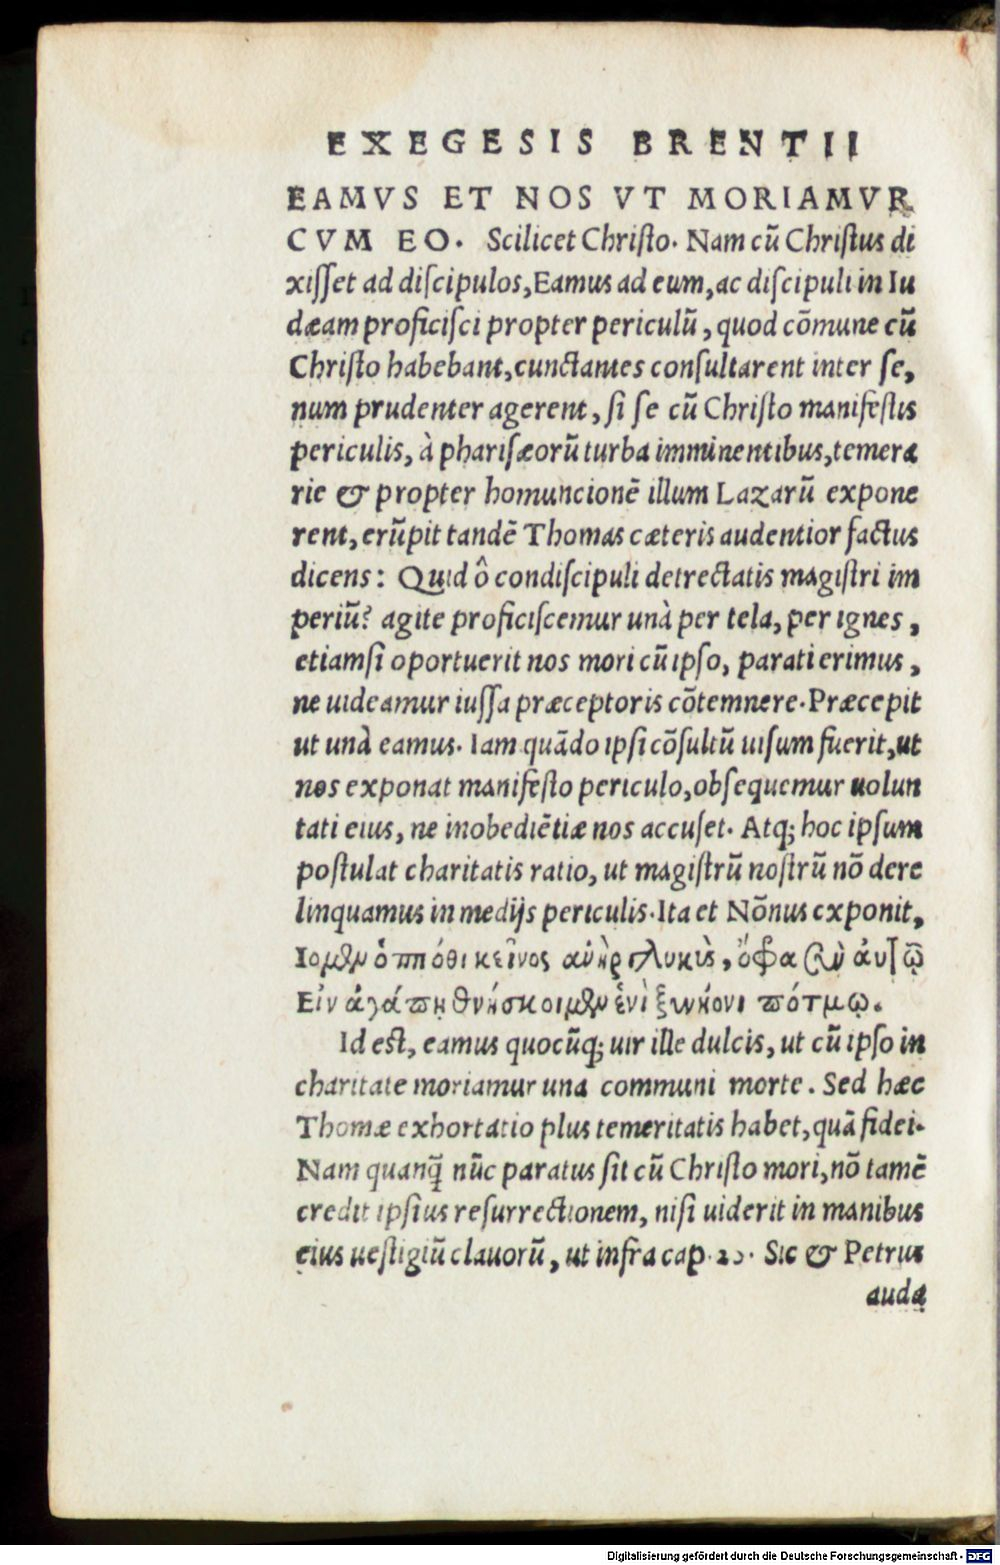 EXEGESIS BRENTII
EAMVS ET NOS VT MORIAMVR
CVM EO. Scilicet Christo. Nam cū Christus di
xisset ad discipulos, Eamus ad eum, ac discipuli in Iu
dæam proficisci propter periculū, quod cōmune cū
Christo habebant, cunctantes consultarent inter se,
num prudenter agerent, si se cū Christo manifestis
periculis, à pharisæorū turba imminentibus, temera
rie & propter homuncionē illum Lazarū expone
rent, erūpit tandē Thomas cæteris audentior factus
dicens: Quid ô condiscipuli detrectatis magistri im
periū? agite proficiscemur unà per tela, per ignes,
etiamsi oportuerit nos mori cū ipso, parati erimus,
ne uideamur iussa præceptoris cōtemnere. Præcepit
ut unà eamus. Iam quādo ipsi cōsultū uisum fuerit, ut
nos exponat manifesto periculo, obsequemur uolun
tati eius, ne inobediētiæ nos accuset. Atq; hoc ipsum
postulat charitatis ratio, ut magistrū nostrū nō dere
linquamus in medijs periculis. Ita et Nōnus exponit,
Ιομεν ὁππόθι κεῖνος ἀνὴρ γλυκὺς, ὄφρα σὺν αὐτῷ
Εἰν ἀγάπῃ θνήσκοιμεν ἑνὶ ξυνήονι πότμῳ.
Id est, eamus quocūq; uir ille dulcis, ut cū ipso in
charitate moriamur una communi morte. Sed hæc
Thomæ exhortatio plus temeritatis habet, quā fidei.
Nam quanq̄ nūc paratus sit cū Christo mori, nō tamē
credit ipsius resurrectionem, nisi uiderit in manibus
eius uestigiū clauorū, ut infra cap. 20. Sic & Petrus
auda
Digitalisierung gefördert durch die Deutsche Forschungsgemeinschaft - DFG